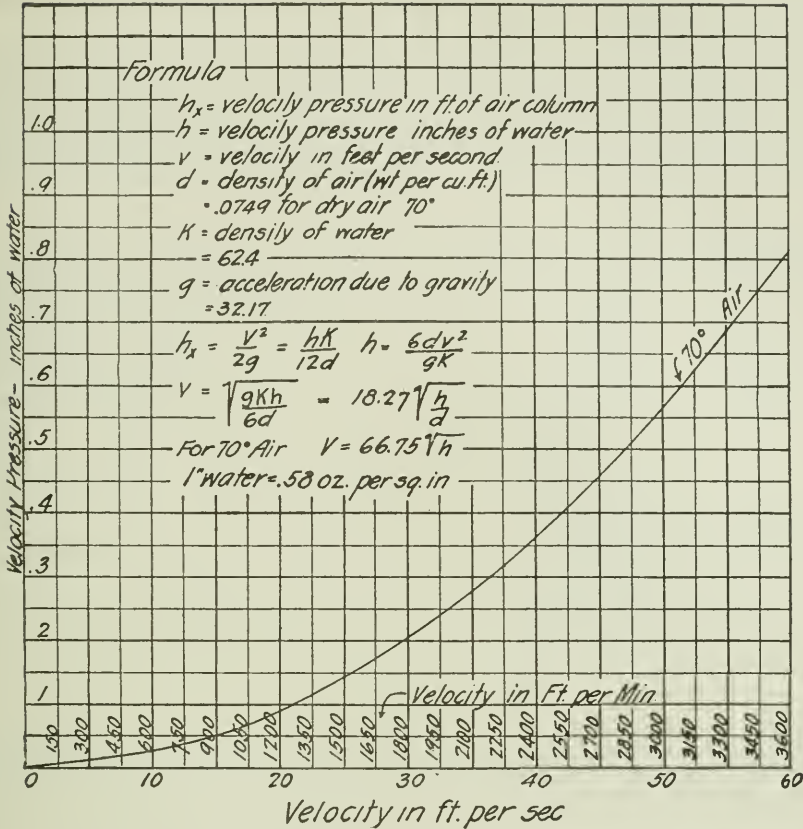 Formula
hₓ = velocity pressure in ft. of air column
h = velocity pressure inches of water
v = velocity in feet per second
d = density of air (wt per cu. ft.)
= .0749 for dry air 70°
K = density of water
= 62.4
g = acceleration due to gravity
= 32.17
hₓ = V²/2g = hK/12d h = 6dv²/gK
V = √(gKh/6d) = 18.27√(h/d)
For 70° Air V = 66.75√h
1" water = .58 oz. per sq. in
70° Air
Velocity Pressure - inches of water
1.0
.9
.8
.7
.6
.5
.4
.3
2
1
Velocity in Ft. per Min
150 300 450 600 750 900 1050 1200 1350 1500 1650 1800 1950 2100 2250 2400 2550 2700 2850 3000 3150 3300 3450 3600
0 10 20 30 40 50 60
Velocity in ft. per sec